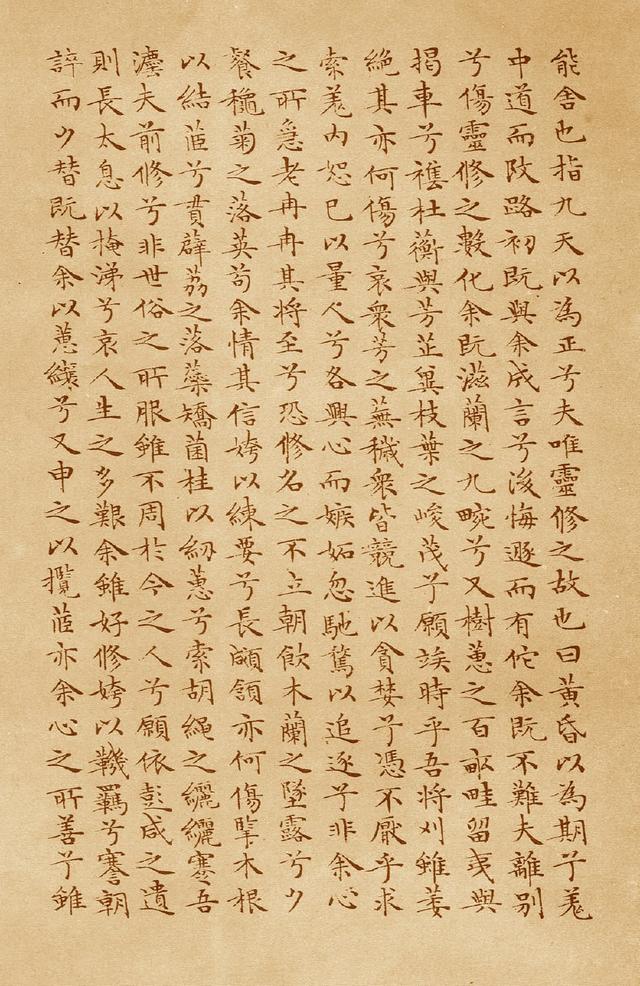 能舍也指九天以為正兮夫唯靈修之故也曰黃昏以為期兮羌
中道而改路初既與余成言兮後悔遯而有佗余既不難夫離別
兮傷靈修之數化余既滋蘭之九畹兮又樹蕙之百畝畦留夷與
揭車兮襍杜蘅與芳芷冀枝葉之峻茂兮願竢時乎吾將刈雖萎
絕其亦何傷兮哀衆芳之蕪穢衆皆競進以貪婪兮憑不厭乎求
索羌內恕已以量人兮各興心而嫉妬忽馳騖以追逐兮非余心
之所急老冉冉其將至兮恐修名之不立朝飲木蘭之墜露兮夕
餐秋菊之落英苟余情其信姱以練要兮長顑頷亦何傷掔木根
以結茝兮貫薜荔之落蘂矯菌桂以紉蕙兮索胡繩之纚纚謇吾
灋夫前修兮非世俗之所服雖不周於今之人兮願依彭咸之遺
則長太息以掩涕兮哀人生之多艱余雖好修姱以鞿羈兮謇朝
誶而夕替既替余以蕙纕兮又申之以攬茝亦余心之所善兮雖